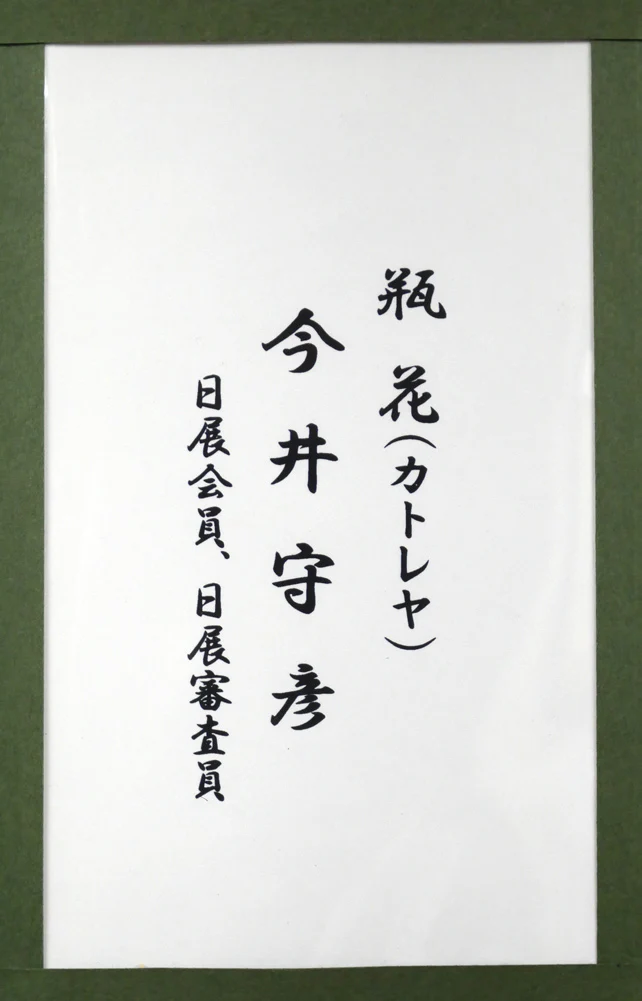 瓶花(カトレヤ)
今井守彦
日展会員、日展審査員